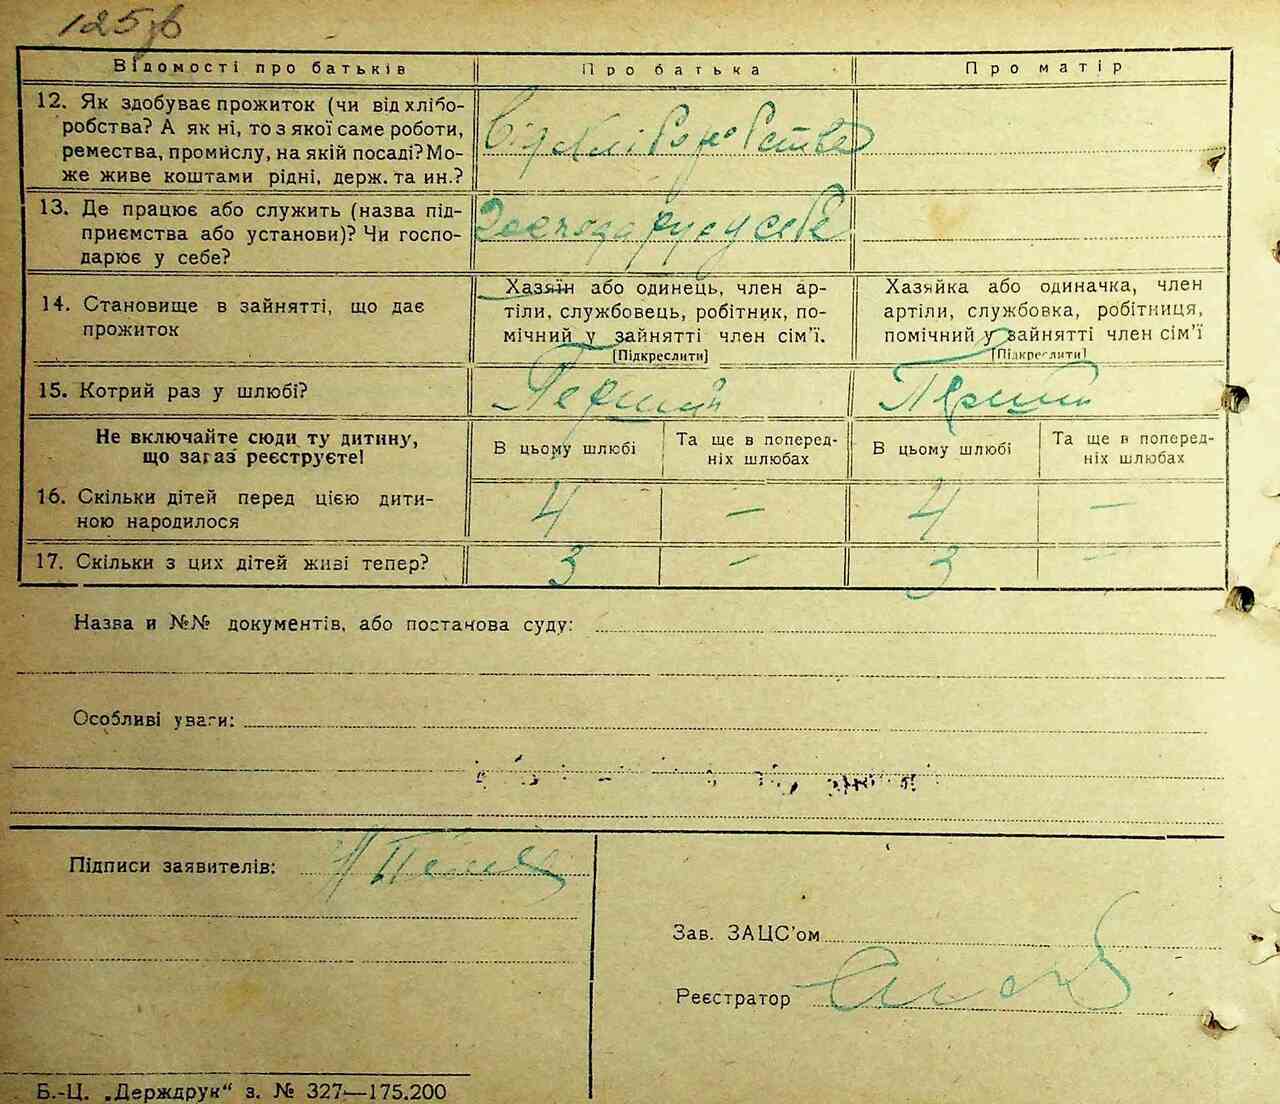 125 зв
Відомості про батьків
Про батька
Про матір
12. Як здобуває прожиток (чи від хлібо-
робства? А як ні, то з якої саме роботи,
ремества, промислу, на якій посаді? Мо-
же живе коштами рідні, держ. та ин.?
Від хліборобства
13. Де працює або служить (назва під-
приємства або установи)? Чи госпо-
дарює у себе?
Господарує у себе
14. Становище в зайнятті, що дає
прожиток
Хазяїн або одинець, член ар-
тіли, службовець, робітник, по-
мічний у зайнятті член сім'ї.
[Підкреслити]
Хазяйка або одиначка, член
артіли, службовка, робітниця,
помічний у зайнятті член сім'ї
[Підкреслити]
15. Котрий раз у шлюбі?
Перший
Перший
Не включайте сюди ту дитину,
що зараз реєструєте!
В цьому шлюбі
Та ще в поперед-
ніх шлюбах
В цьому шлюбі
Та ще в поперед-
ніх шлюбах
16. Скільки дітей перед цією дити-
ною народилося
4 — 4 —
17. Скільки з цих дітей живі тепер?
3 — 3 —
Назва и №№ документів, або постанова суду:
Особливі уваги:
Підписи заявителів:
Зав. ЗАЦС'ом
Реєстратор
Б.-Ц. „Держдрук“ з. № 327—175.200